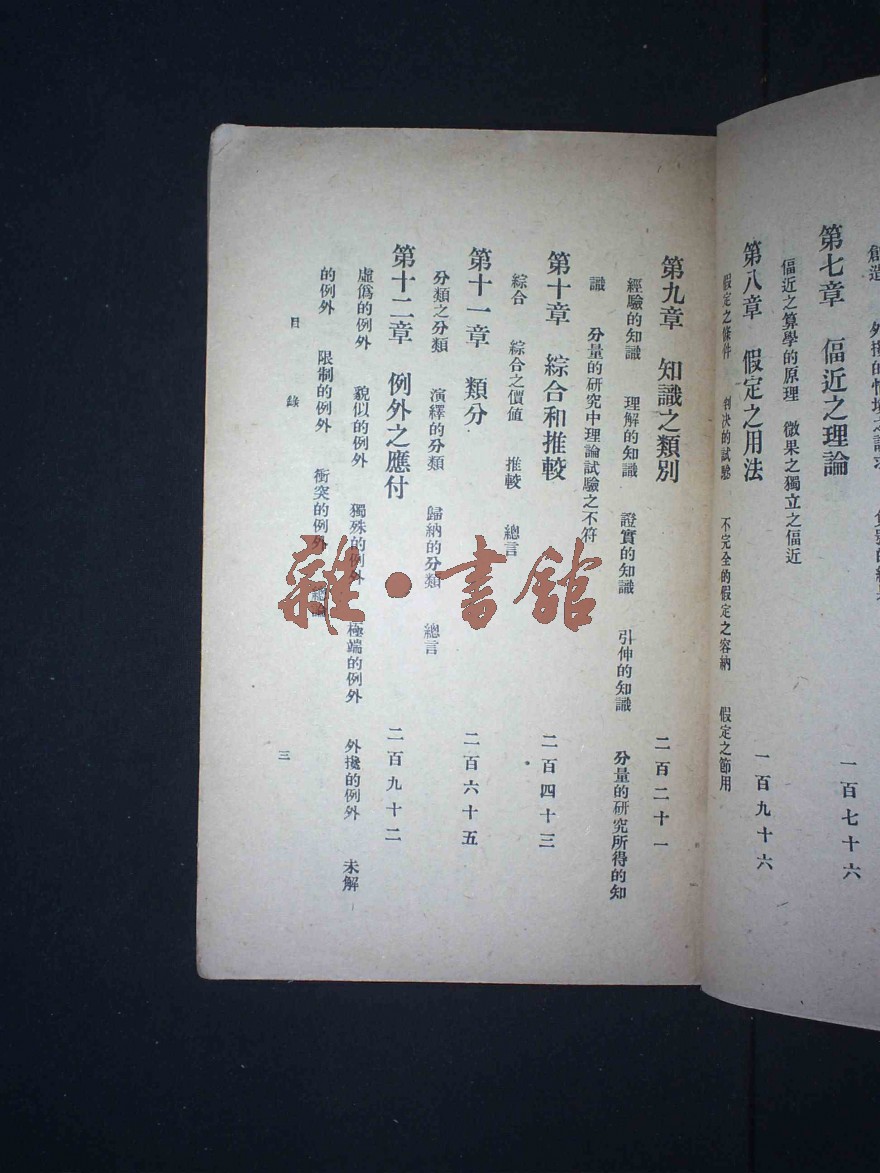 第七章　偪近之理論　一百七十六
偪近之算學的原理　微果之獨立之偪近
第八章　假定之用法　一百九十六
假定之條件　判决的試驗　不完全的假定之容納　假定之節用
第九章　知識之類別　二百二十一
經驗的知識　理解的知識　證實的知識　引伸的知識　分量的研究所得的知
識　分量的研究中理論試驗之不符
第十章　綜合和推較　二百四十三
綜合　綜合之價値　推較　總言
第十一章　類分　二百六十五
分類之分類　演繹的分類　歸納的分類　總言
第十二章　例外之應付　二百九十二
虛僞的例外　貌似的例外　獨殊的例外　極端的例外　外攙的例外　未解
的例外　限制的例外　衝突的例外　總論
目錄
三
雜·書館